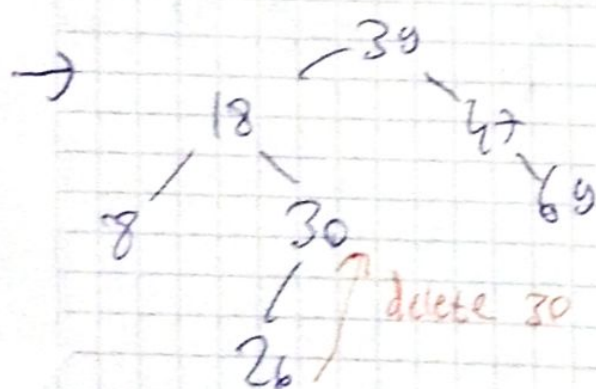 → 39
18 47
8 30 69
delete 30
26